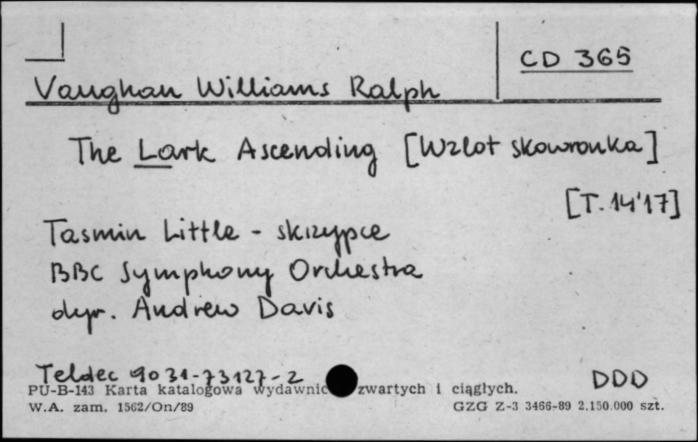 CD 365
Vaughan Williams Ralph
The Lark Ascending [Wzlot skowronka]
[T. 14'17]
Tasmin Little - skrzypce
BBC Symphony Orchestra
dyr. Andrew Davis
Teldec 9031-73127-2 DDD
PU-B-143 Karta katalogowa wydawnic zwartych i ciągłych.
W.A. zam. 1562/On/89 GZG Z-3 3466-89 2.150.000 szt.